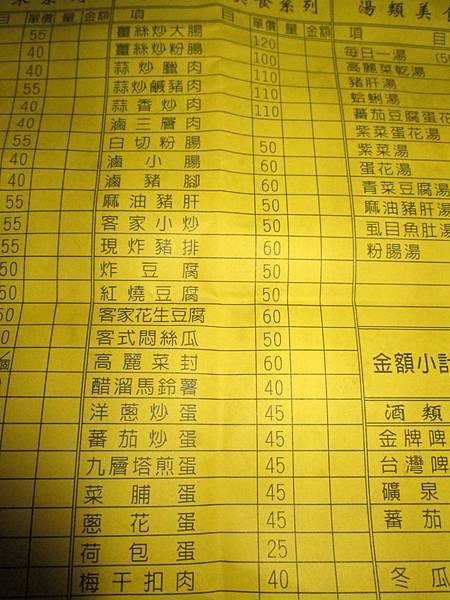 食系列 湯類美食
價 量 金額 項 目 單價 量 金額 項 目
55 薑絲炒大腸 120 每日一湯
40 薑絲炒粉腸 100 高麗菜乾湯
40 蒜炒臘肉 110 豬肝湯
55 蒜炒鹹豬肉 110 蛤蜊湯
40 蒜香炒肉 110 蕃茄豆腐蛋花
40 滷三層肉 紫菜蛋花湯
55 白切粉腸 50 紫菜湯
40 滷小腸 60 蛋花湯
40 滷豬腳 60 青菜豆腐湯
55 麻油豬肝 50 麻油豬肝湯
55 客家小炒 60 虱目魚肚湯
55 現炸豬排 60 粉腸湯
50 炸豆腐 50
50 紅燒豆腐 50
50 客家花生豆腐 60
0 客式悶絲瓜 50
個 高麗菜封 60 金額小計
醋溜馬鈴薯 40
洋蔥炒蛋 45 酒類
蕃茄炒蛋 45 金牌啤
九層塔煎蛋 45 台灣啤
菜脯蛋 45 礦泉
蔥花蛋 45 蕃茄
荷包蛋 25
梅干扣肉 40 冬瓜